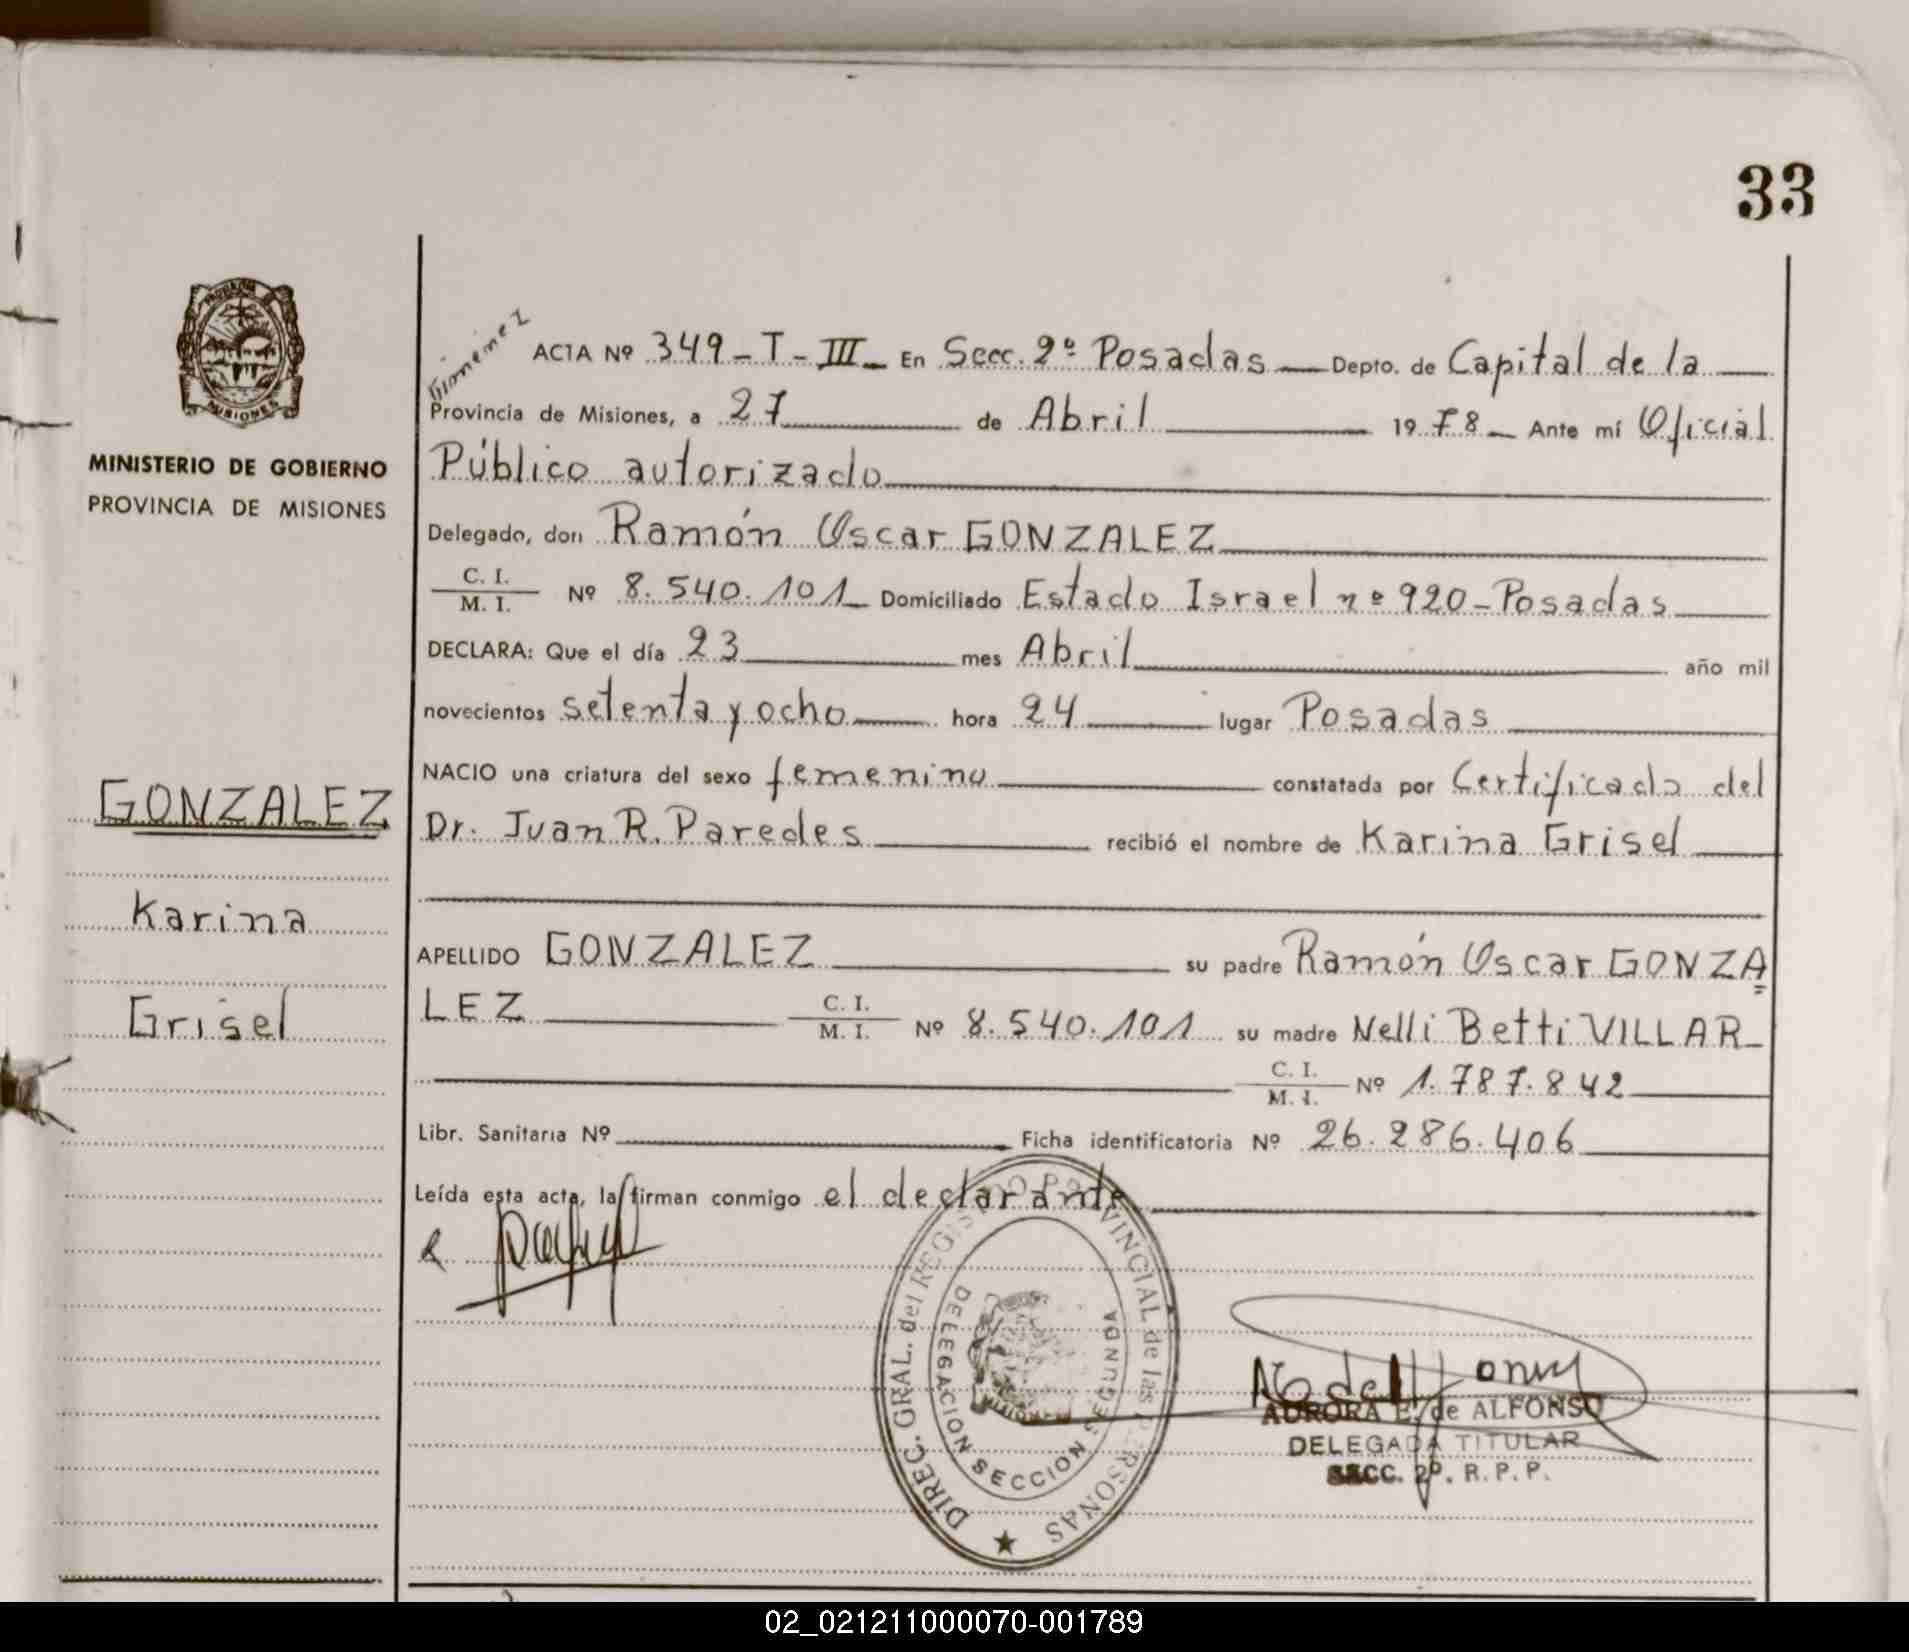 33
PROVINCIA DE
MISIONES
MINISTERIO DE GOBIERNO
PROVINCIA DE MISIONES
GONZALEZ
Karina
Grisel
Gimenez
ACTA Nº 349-T-III- En Secc. 2º Posadas Depto. de Capital de la
Provincia de Misiones, a 27 de Abril 1978 Ante mí Oficial
Público autorizado
Delegado, don Ramón Oscar GONZALEZ
C. I.
M. I. Nº 8.540.101 Domiciliado Estado Israel nº 920-Posadas
DECLARA: Que el día 23 mes Abril año mil
novecientos setenta y ocho hora 24 lugar Posadas
NACIO una criatura del sexo femenino constatada por Certificado del
Dr. Juan R. Paredes recibió el nombre de Karina Grisel
APELLIDO GONZALEZ su padre Ramón Oscar GONZA=
LEZ C. I. M. I. Nº 8.540.101 su madre Nelli Betti VILLAR
C. I. M. I. Nº 1.787.842
Libr. Sanitaria Nº Ficha identificatoria Nº 26.286.406
Leída esta acta, la firman conmigo el declarante
DIREC. GRAL. del REGISTRO PROVINCIAL de las PERSONAS
DELEGACION SECCION SEGUNDA
AURORA E. de ALFONSO
DELEGADA TITULAR
SECC. 2º. R. P. P.
02_021211000070-001789